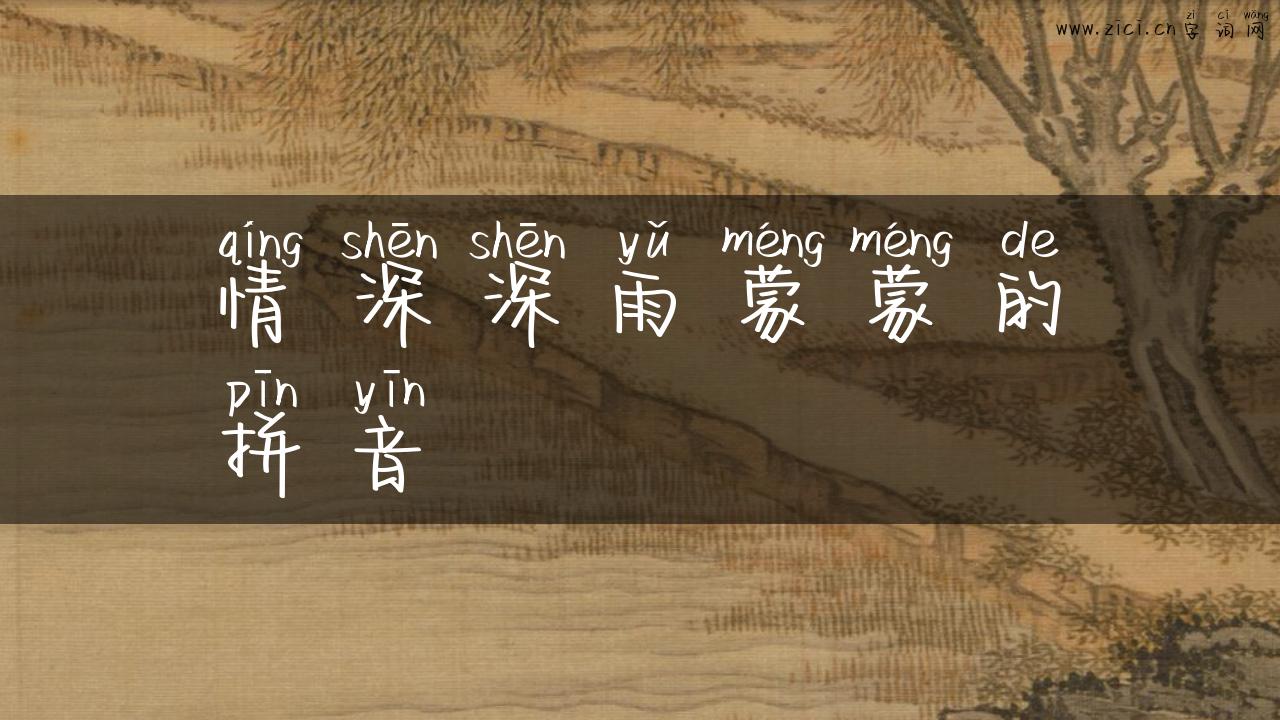 zì cí wǎng
www.zici.cn字词网
qíng shēn shēn yǔ méng méng de
情深深雨蒙蒙的
pīn yīn
拼音